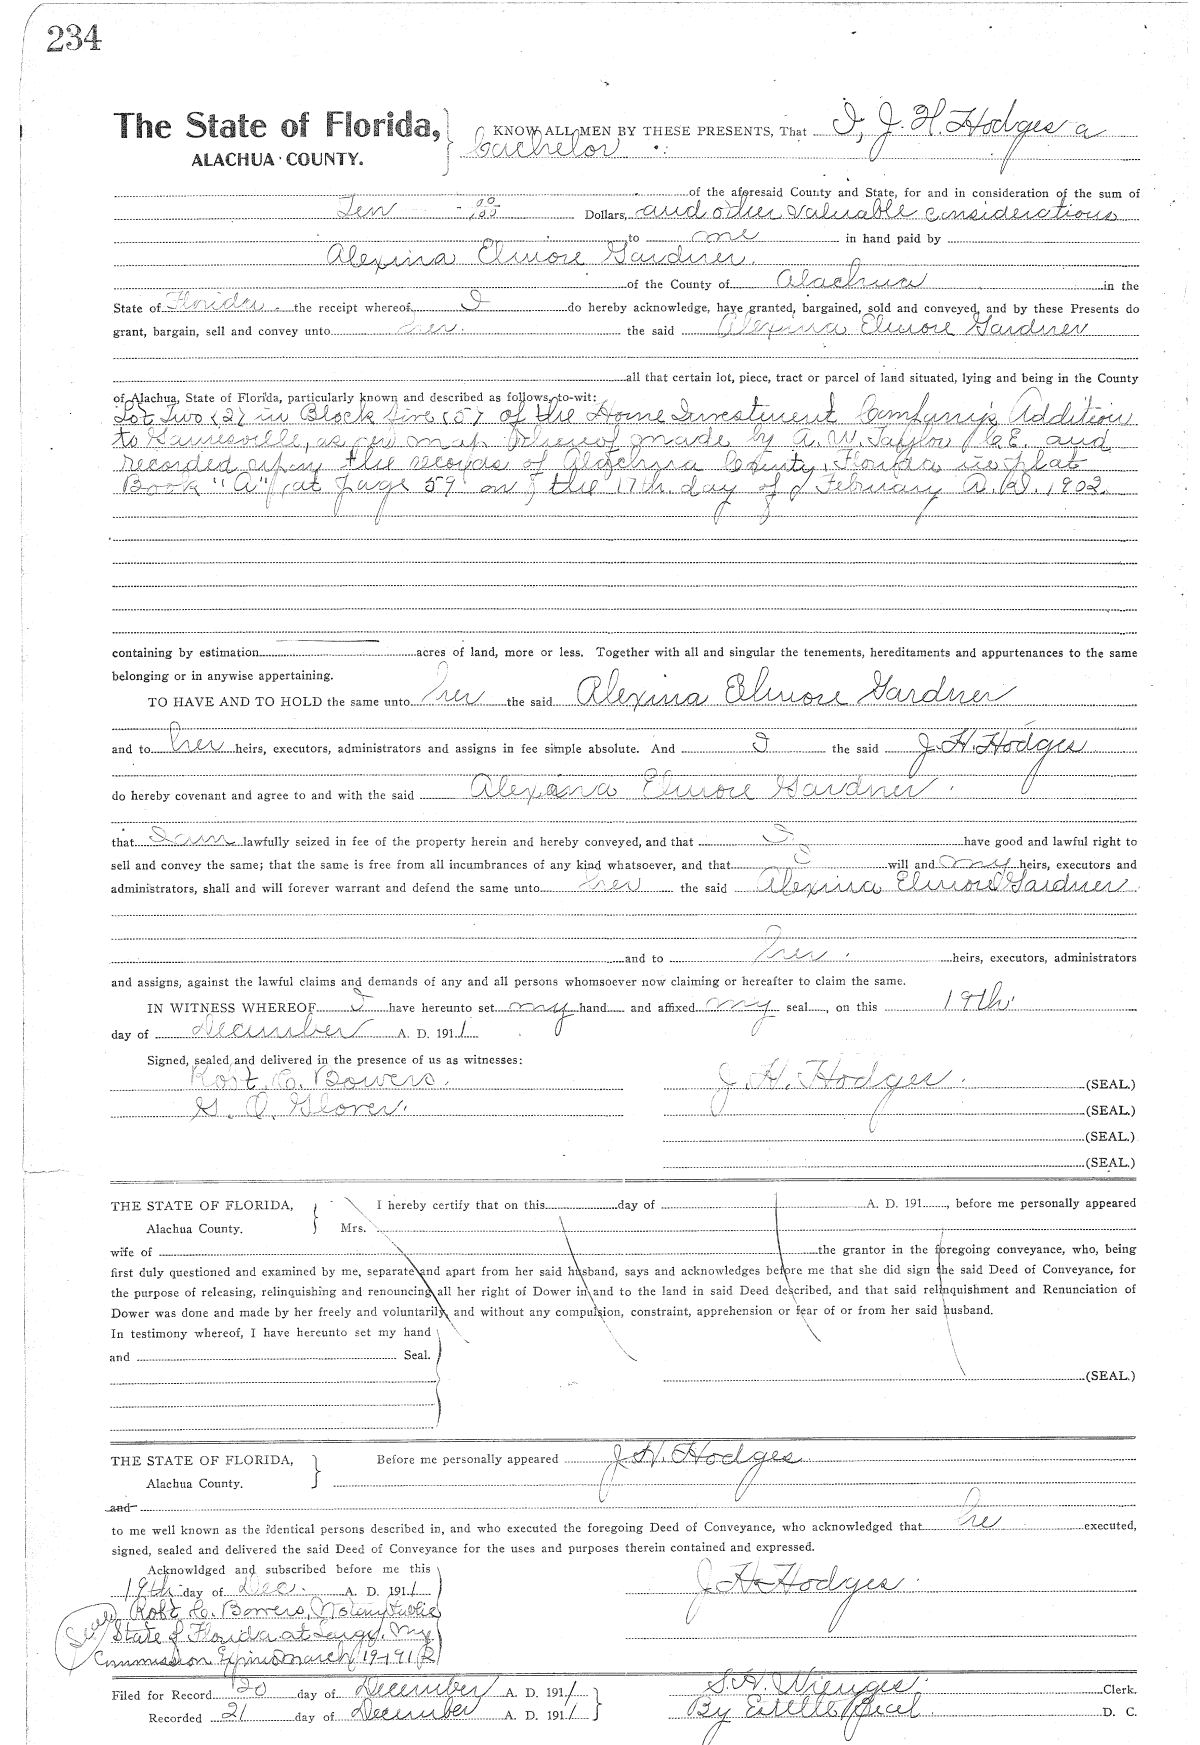 234
The State of Florida,
ALACHUA COUNTY.
KNOW ALL MEN BY THESE PRESENTS, That I, J. H. Hodges a
bachelor
of the aforesaid County and State, for and in consideration of the sum of
Ten 00/100 Dollars, and other valuable considerations
to me in hand paid by
Alexina Elmore Gardner.
of the County of Alachua in the
State of Florida. the receipt whereof I do hereby acknowledge, have granted, bargained, sold and conveyed, and by these Presents do
grant, bargain, sell and convey unto her. the said Alexina Elmore Gardner
all that certain lot, piece, tract or parcel of land situated, lying and being in the County
of Alachua, State of Florida, particularly known and described as follows, to-wit:
Lot Two (2) in Block five (5) of the Home Investment Company's Addition
to Gainesville, as per map thereof made by A. W. Taylor C.E. and
recorded upon the records of Alachua County, Florida in plat
Book "A", at page 59 on the 17th. day of February A. D. 1902.
containing by estimation acres of land, more or less. Together with all and singular the tenements, hereditaments and appurtenances to the same
belonging or in anywise appertaining.
TO HAVE AND TO HOLD the same unto her the said Alexina Elmore Gardner
and to her heirs, executors, administrators and assigns in fee simple absolute. And I the said J. H. Hodges
do hereby covenant and agree to and with the said Alexina Elmore Gardner.
that I am lawfully seized in fee of the property herein and hereby conveyed, and that I have good and lawful right to
sell and convey the same; that the same is free from all incumbrances of any kind whatsoever, and that I will and my heirs, executors and
administrators, shall and will forever warrant and defend the same unto her the said Alexina Elmore Gardner.
and to her. heirs, executors, administrators
and assigns, against the lawful claims and demands of any and all persons whomsoever now claiming or hereafter to claim the same.
IN WITNESS WHEREOF I have hereunto set my hand and affixed my seal, on this 19th.
day of December A. D. 1911
Signed, sealed and delivered in the presence of us as witnesses:
Robt. C. Bowers. J. H. Hodges. (SEAL.)
G. O. Glover. (SEAL.)
(SEAL.)
(SEAL.)
THE STATE OF FLORIDA, I hereby certify that on this day of A. D. 191 , before me personally appeared
Alachua County. Mrs.
wife of the grantor in the foregoing conveyance, who, being
first duly questioned and examined by me, separate and apart from her said husband, says and acknowledges before me that she did sign the said Deed of Conveyance, for
the purpose of releasing, relinquishing and renouncing all her right of Dower in and to the land in said Deed described, and that said relinquishment and Renunciation of
Dower was done and made by her freely and voluntarily, and without any compulsion, constraint, apprehension or fear of or from her said husband.
In testimony whereof, I have hereunto set my hand
and Seal.
(SEAL.)
THE STATE OF FLORIDA, Before me personally appeared J. H. Hodges
Alachua County.
and
to me well known as the identical persons described in, and who executed the foregoing Deed of Conveyance, who acknowledged that he executed,
signed, sealed and delivered the said Deed of Conveyance for the uses and purposes therein contained and expressed.
Acknowldged and subscribed before me this
19th day of Dec. A. D. 1911 J. H. Hodges.
Robt. C. Bowers, Notary Public
Seal State of Florida at Large. My
Commission Expires March 19-191
Filed for Record 20 day of December A. D. 1911 S. H. Wienges. Clerk.
Recorded 21 day of December A. D. 1911 By Estelle D. C.